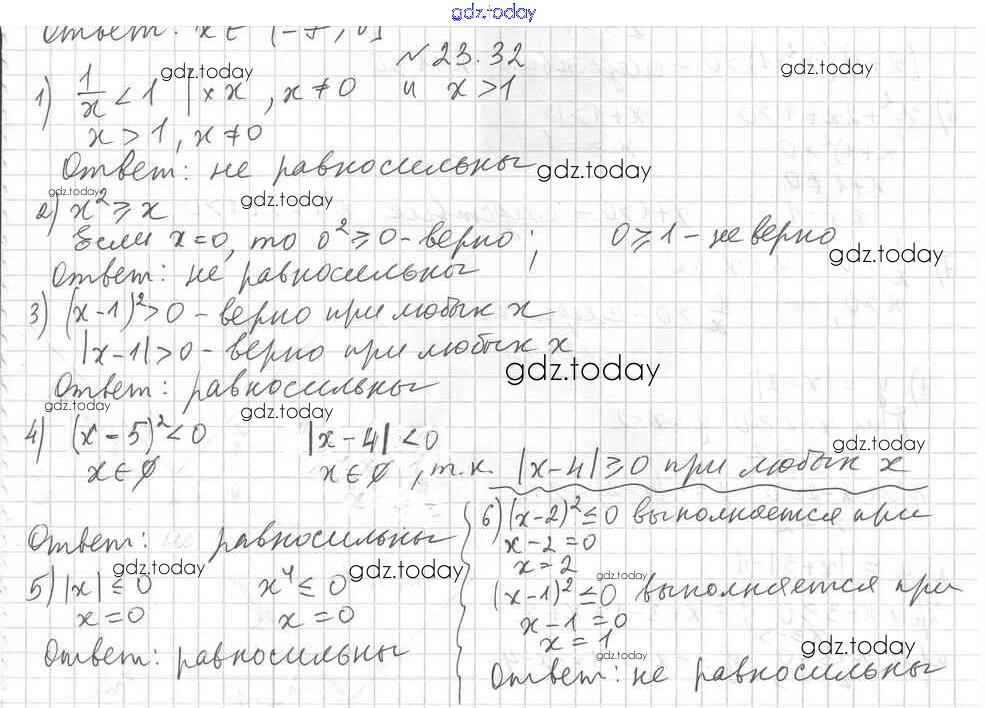 gdz.today
Ответ: x ∈ [-7; 0]
№ 23.32
gdz.today gdz.today
1) 1/x < 1 | × x, x ≠ 0 и x > 1
x > 1, x ≠ 0
Ответ: не равносильны gdz.today
gdz.today gdz.today
2) x² ≥ x
Если x = 0, то 0² ≥ 0 - верно; 0 ≥ 1 - не верно
gdz.today
Ответ: не равносильны
3) (x-1)² > 0 - верно при любых x
|x-1| > 0 - верно при любых x
gdz.today
Ответ: равносильны
gdz.today gdz.today
4) (x-5)² < 0 |x-4| < 0
gdz.today
x ∈ ∅ x ∈ ∅, т.к. |x-4| ≥ 0 при любых x
Ответ: не равносильны
gdz.today gdz.today
5) |x| ≤ 0 x⁴ ≤ 0
x = 0 x = 0
Ответ: равносильны
6) (x-2)² ≤ 0 выполняется при
x-2 = 0
x = 2
gdz.today
(x-1)² ≤ 0 выполняется при
x-1 = 0
x = 1
gdz.today gdz.today
Ответ: не равносильны